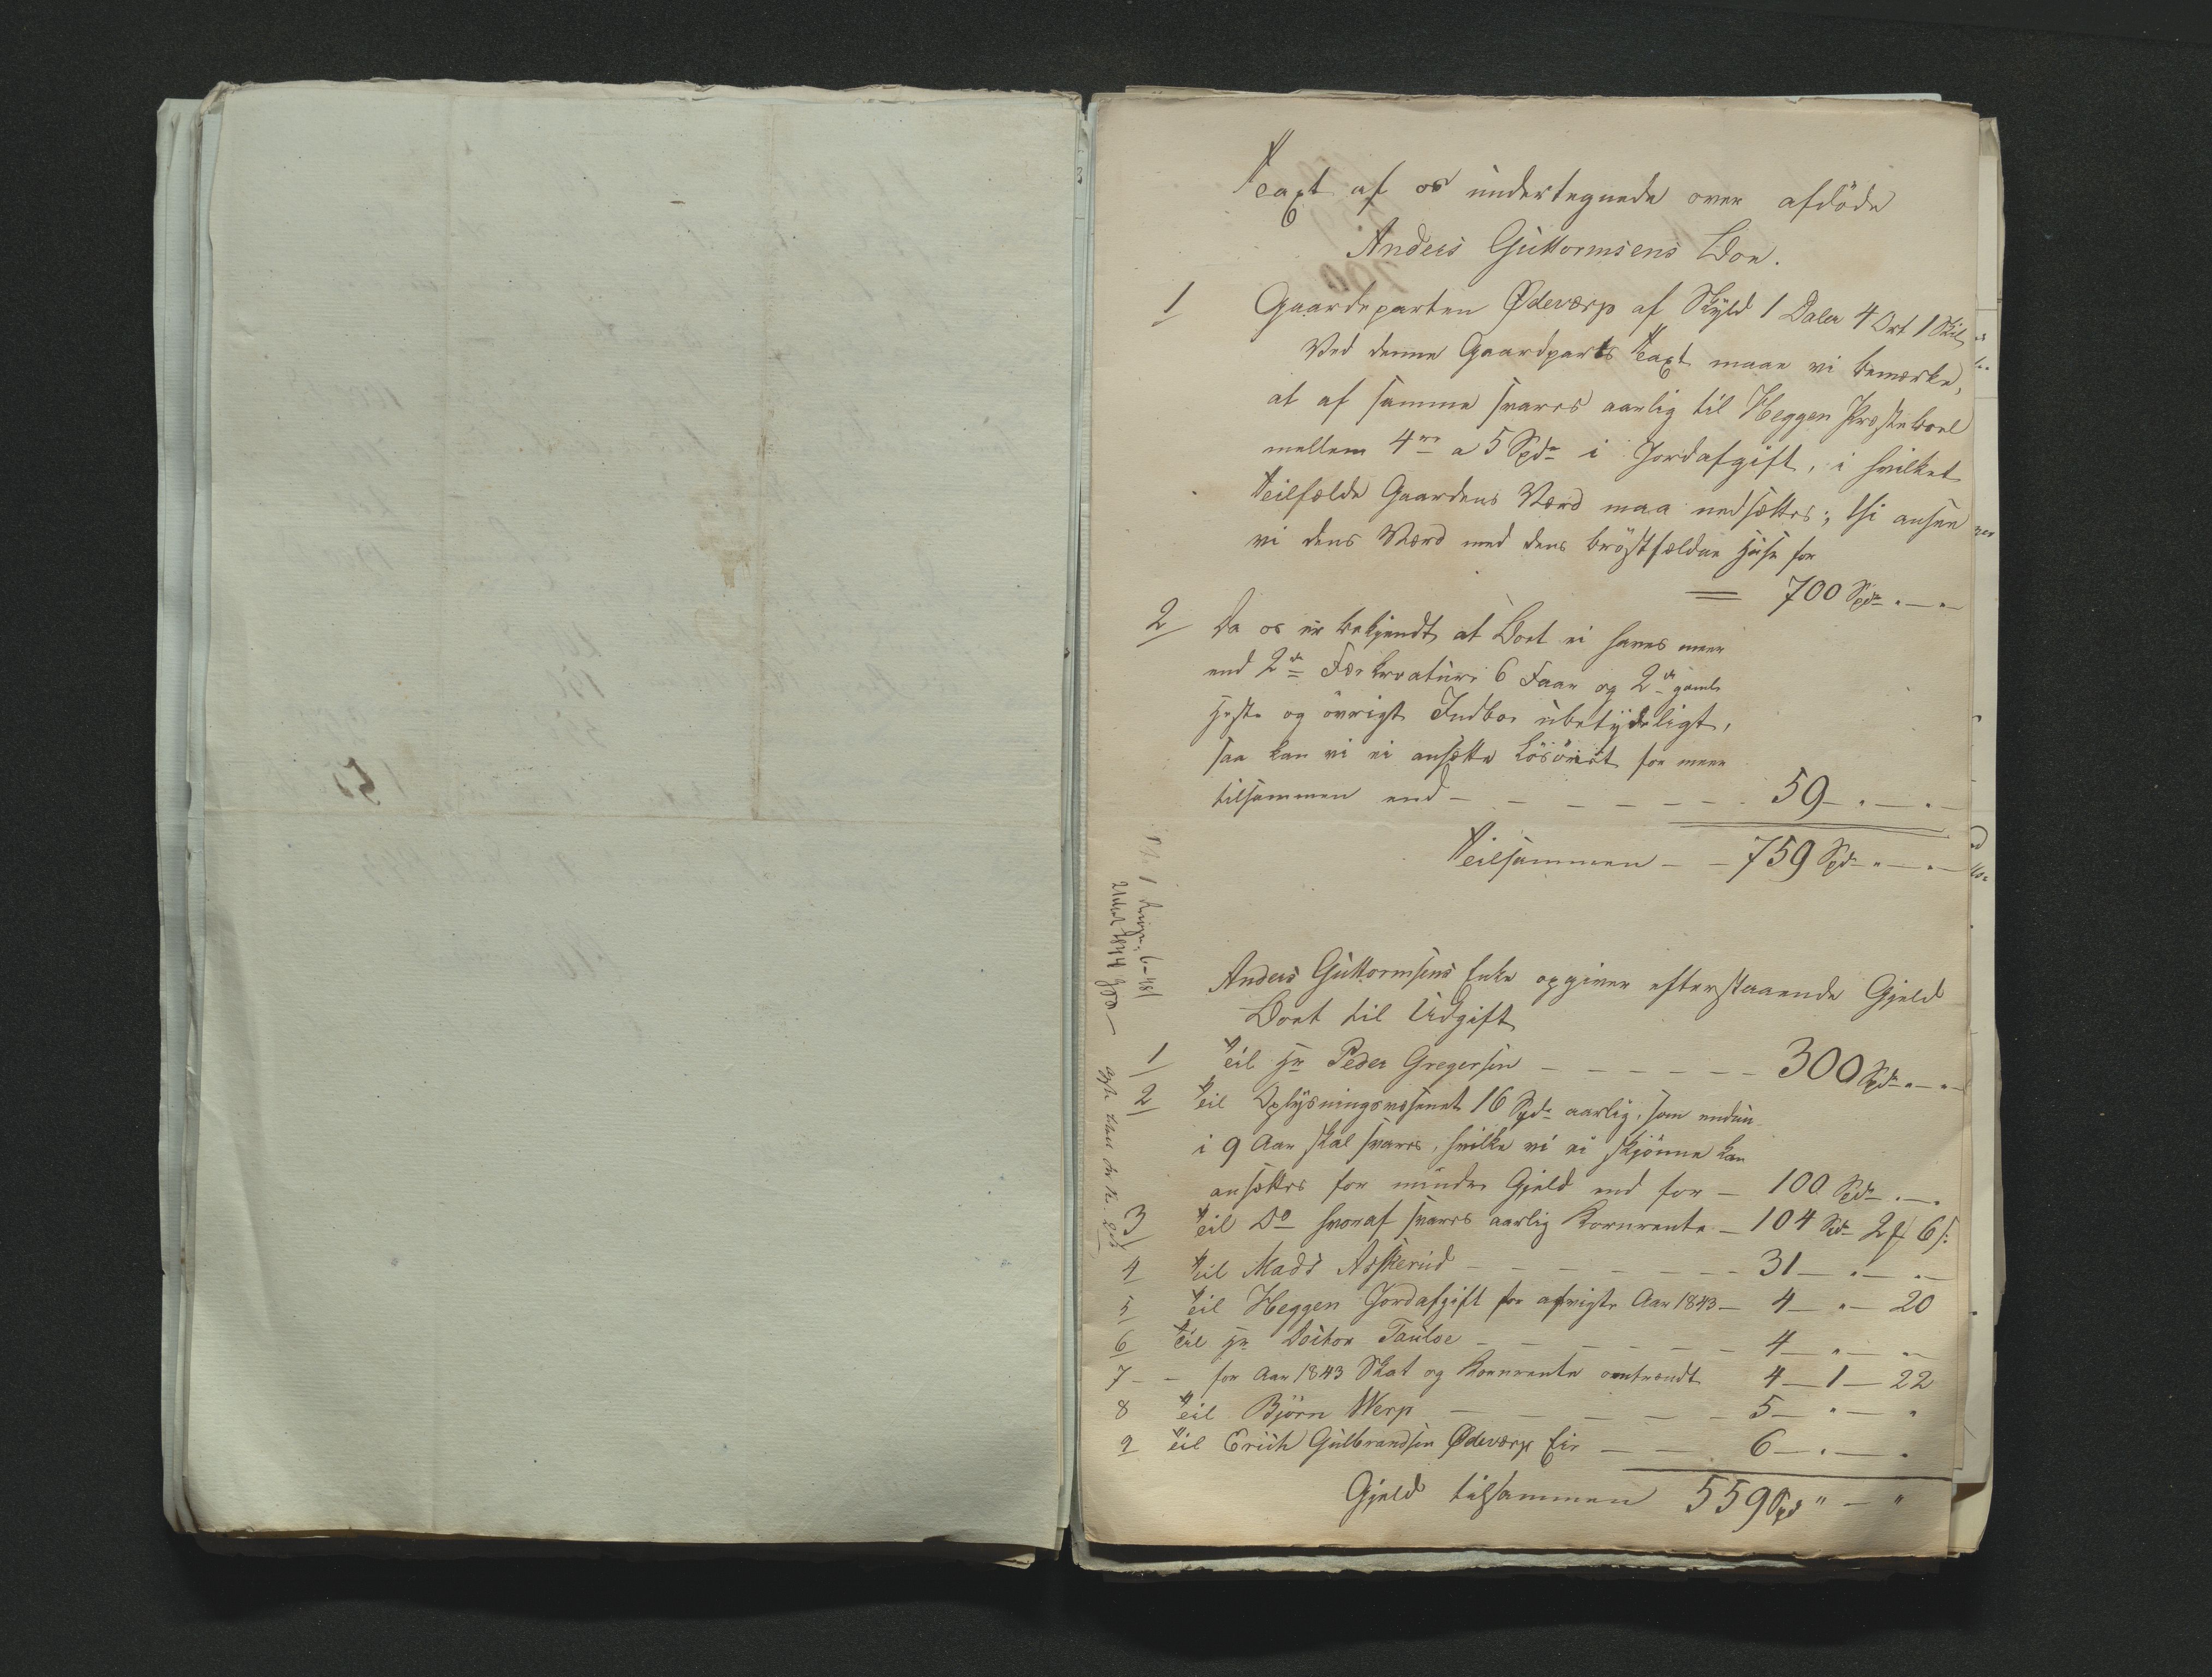 Taxt af os undertegnede over afdöde
Anders Guttormsens Boe.
1 Gaardeparten Ødeværp af Skyld 1 Daler 4 Ort 1 Skil
Ved denne Gaardparts Taxt maae vi bemærke,
at af samme svares aarlig til Heggen Præsteboel
mellem 4re a 5 Spd i Jordafgift, i hvilket
Teilfælde Gaardens Værd maa nedsættes; thi ansee
vi dens Værd med dens bröstfældue Huse for
700 Spd " — "
2 Da os er bekjendt at Boet ei haves meer
end 2de Fækreature 6 Faar og 2de gamle
Heste og övrigt Indboe ubetydeligt,
saa kan vi ei ansætte Lösöret for mere
tilsammen end — 59 — " — "
Teilsammen — 759 Spd " — "
Anders Guttormsens Enke opgiver efterstaaende Gjeld
Boet til Udgift
1 Teil Hr Peder Gregersen — 300 Spd " — "
2 Teil Oplysningsvæsenet 16 Spd aarlig, som endnu
i 9 Aar skal svares, hvilke vi ei skjönne kan
ansættes for mindre Gjeld end for — 100 Spd " — "
3 Teil Do hvoraf svares aarlig Kornrente — 104 Spd 2 6
4 Teil Mads Askerud — 31 — " — "
5 Teil Heggen Jordafgift for afvigte Aar 1843 — 4 — " — 20
6 Teil Hr Docter Tauloe — 4 — " — "
7 — for Aar 1843 Skat og Kornrente omtrendt 4 — 1 — 22
8 Teil Björn Werp — 5 — " — "
9 Teil Erich Gulbrandsen Ødeværp Eie — 6 — " — "
Gjeld tilsammen 559 Spd " — "